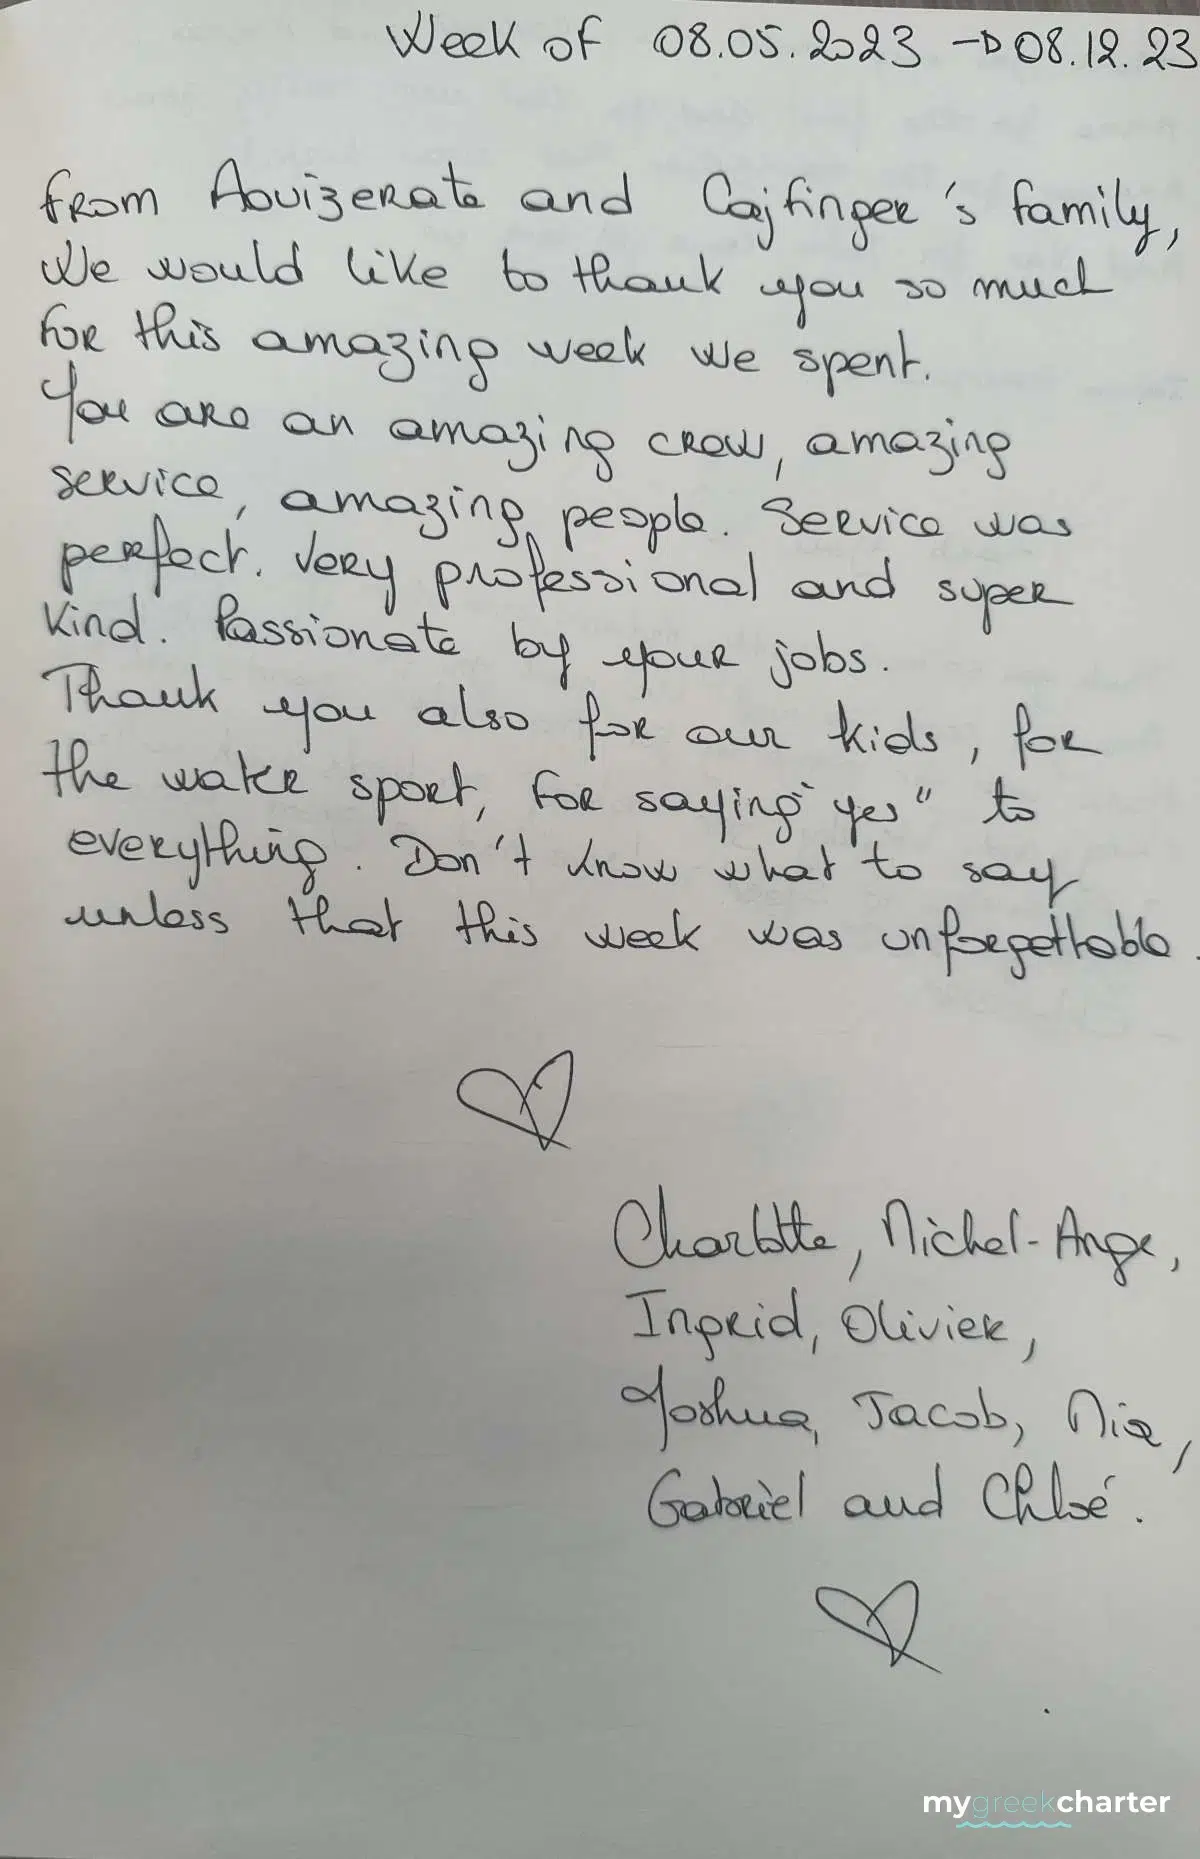 Week of 08.05.2023 → 08.12.23
From Aouizerate and Cajfinger's family,
We would like to thank you so much
for this amazing week we spent.
You are an amazing crew, amazing
service, amazing people. Service was
perfect. Very professional and super
kind. Passionate by your jobs.
Thank you also for our kids, for
the water sport, for saying "yes" to
everything. Don't know what to say
unless that this week was unforgettable.
Charlotte, Michel-Ange,
Ingrid, Olivier,
Joshua, Jacob, Mia,
Gabriel and Chloé.
mygreekcharter